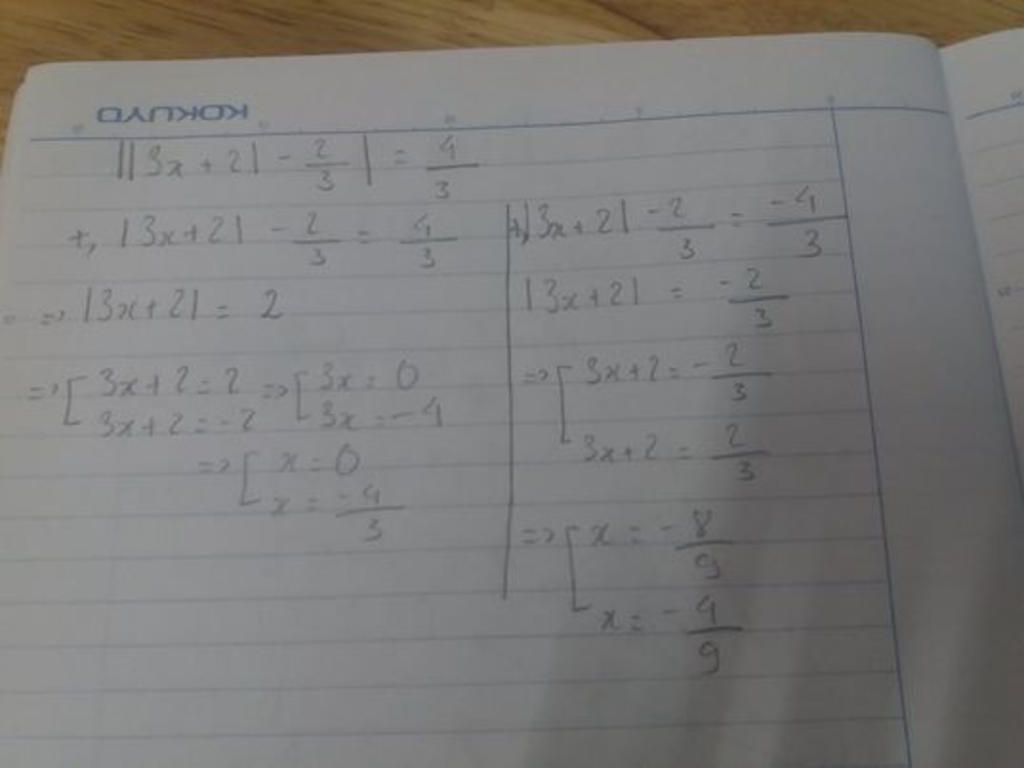 KOKUYO
||3x + 2| - 2/3| = 4/3
+, |3x+2| - 2/3 = 4/3
=> |3x+2| = 2
=> [ 3x+2=2 => [ 3x = 0
3x+2=-2 3x = -4
=> [ x = 0
x = -4/3
+, |3x+2| - 2/3 = -4/3
|3x+2| = -2/3
=> [ 3x+2 = -2/3
3x+2 = 2/3
=> [ x = -8/9
x = -4/9